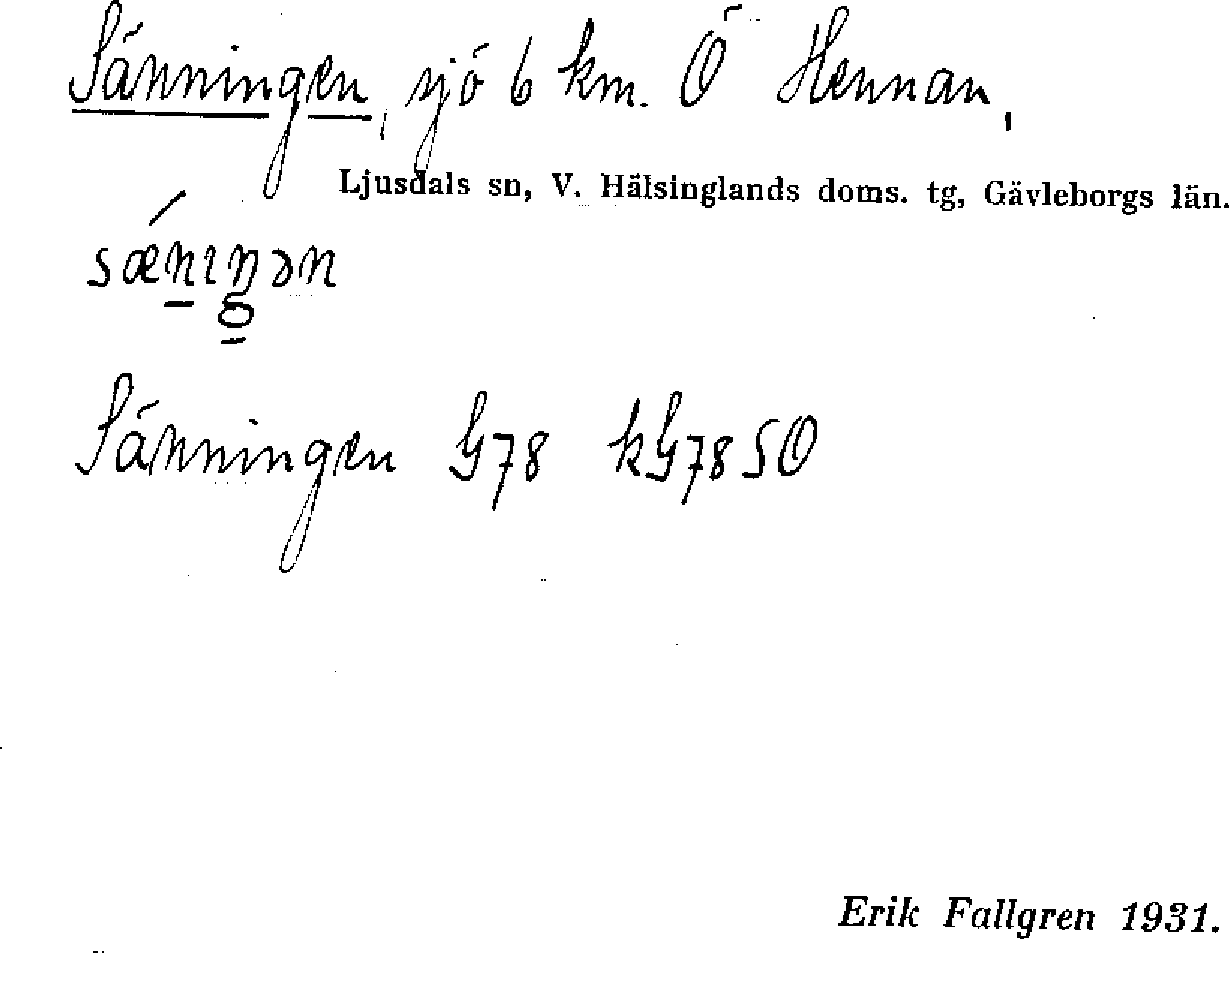 Sänningen, sjö 6 km. Ö Hennan,
Ljusdals sn, V. Hälsinglands doms. tg, Gävleborgs län.
sæ´nıŋən
Sänningen G78 kG78SO
Erik Fallgren 1931.